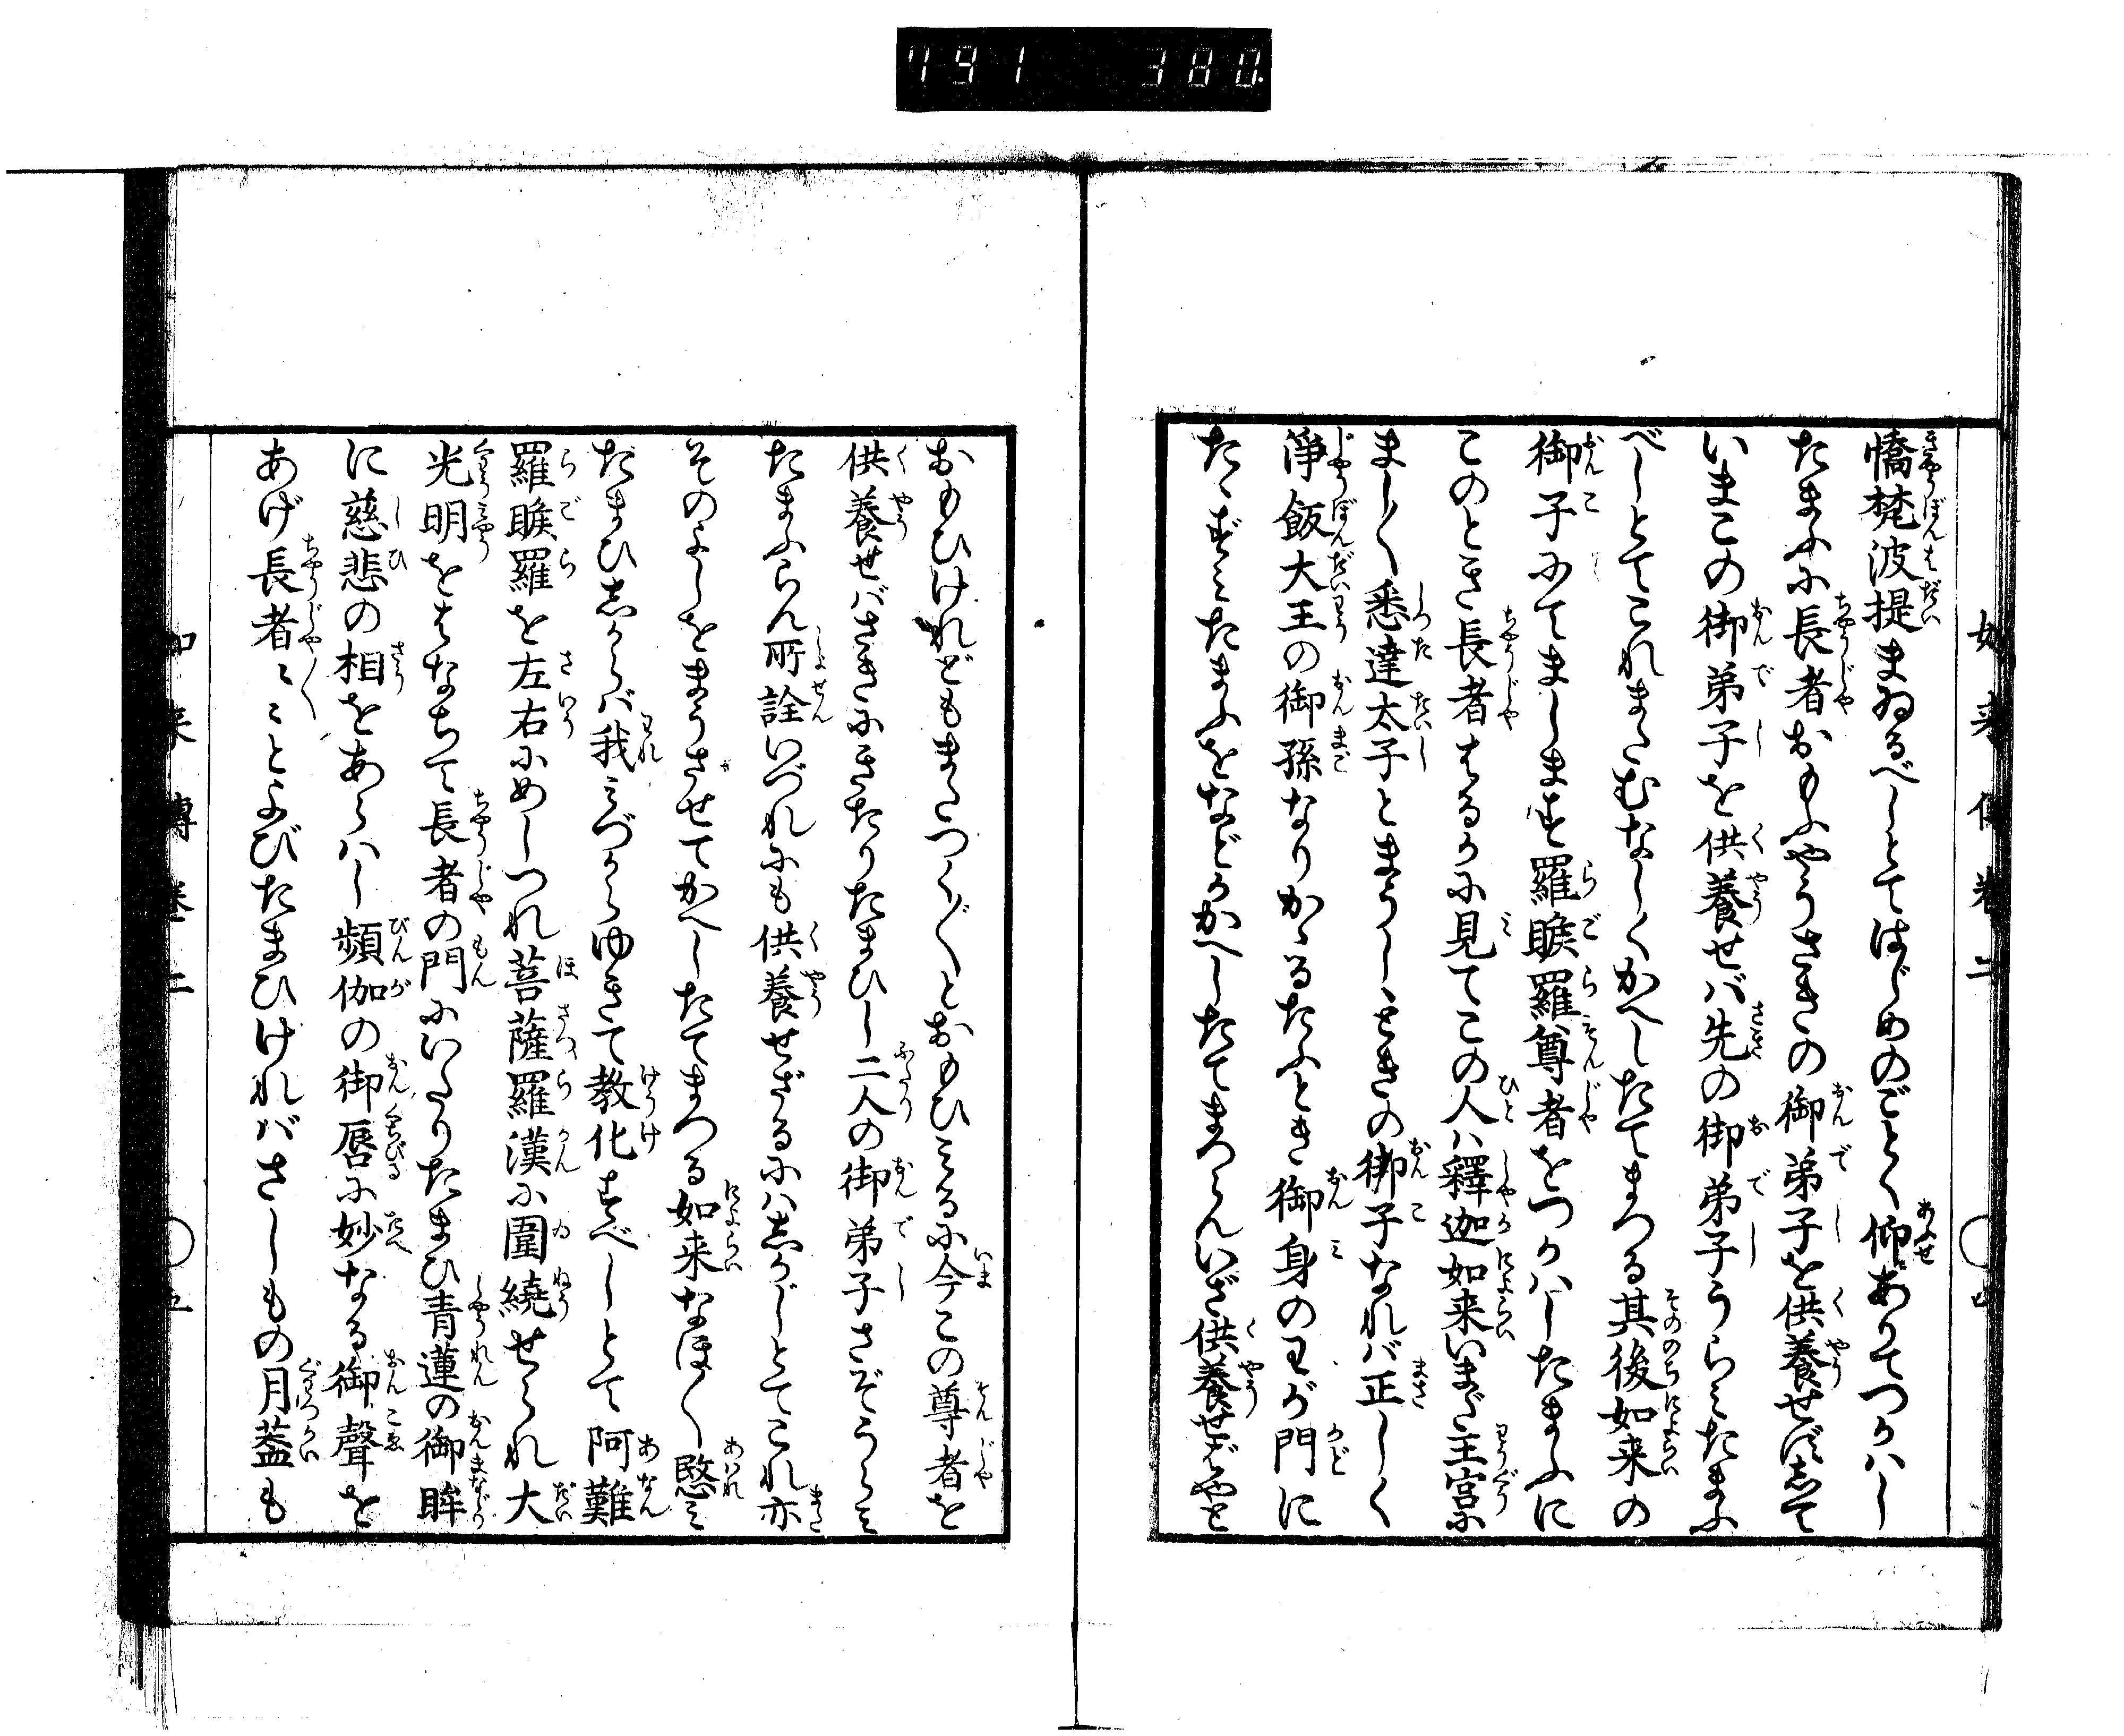 791 380
如来傳巻二 四
憍梵波提まゐるべしとてはじめのごとく仰ありてつかハし
たまふに長者おもふやうさきの御弟子を供養せずして
いまこの御弟子を供養せバ先の御弟子うらミたまふ
べしとてこれまたむなしくかへしたてまつる其後如来の
御子にてまします羅睺羅尊者をつかハしたまふに
このとき長者はるかに見てこの人ハ釋迦如来いまだ王宮に
まし〳〵悉達太子とまうしゝときの御子なれバ正しく
淨飯大王の御孫なりかゝるたふとき御身のわが門に
たゝずミたまふをなどかかへしたてまつらんいざ供養せばやと
おもひけれどもまたつら〳〵とおもひミるに今この尊者を
供養せバさきにきたりたまひし二人の御弟子さぞうらミ
たまふらん所詮いづれにも供養せざるにハしかじとてこれ亦
そのよしをまうさせてかへしたてまつる如来なほ〳〵愍ミ
たまひしからバ我ミづからゆきて教化すべしとて阿難
羅睺羅を左右にめしつれ菩薩羅漢に圍繞せられ大
光明をはなちて長者の門にいたりたまひ青蓮の御眸
に慈悲の相をあらハし頻伽の御唇に妙なる御聲を
あげ長者〳〵ミことよびたまひけれバさしもの月蓋も
如来傳巻二 五